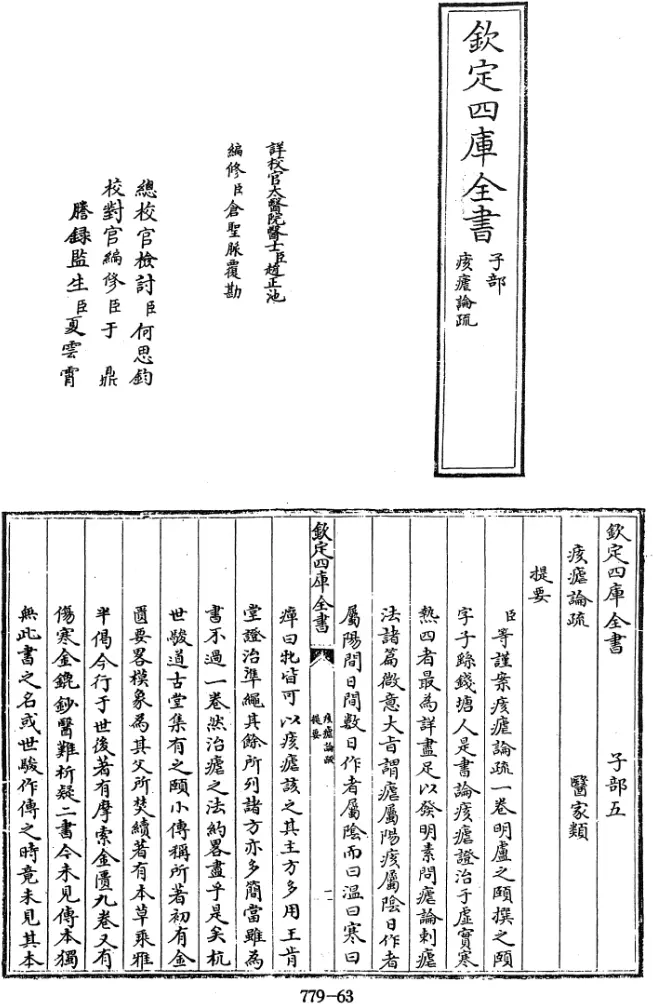 欽定四庫全書
子部
痎瘧論疏
詳校官太醫院醫士臣趙正池
編修臣倉聖脈覆勘
總校官檢討臣何思鈞
校對官編修臣于鼎
謄錄監生臣夏雲霄
欽定四庫全書 子部五
痎瘧論疏 醫家類
提要
臣等謹案痎瘧論疏一卷明盧之頤撰之頤
字子繇錢塘人是書論痎瘧證治于虛實寒
熱四者最為詳盡足以發明素問瘧論刺瘧
法諸篇微意大旨謂瘧屬陽痎屬陰日作者
屬陽間日間數日作者屬陰而曰溫曰寒曰
欽定四庫全書
痎瘧論疏
提要
一
瘴曰牝皆可以痎瘧該之其主方多用王肯
堂證治準繩其餘所列諸方亦多簡當雖為
書不過一卷然治瘧之法約畧盡乎是矣杭
世駿道古堂集有之頤小傳稱所著初有金
匱要畧模象為其父所焚續著有本草乘雅
半偈今行于世後著有摩索金匱九卷又有
傷寒金鎞鈔醫難析疑二書今未見傳本獨
無此書之名或世駿作傳之時竟未見其本
779-63